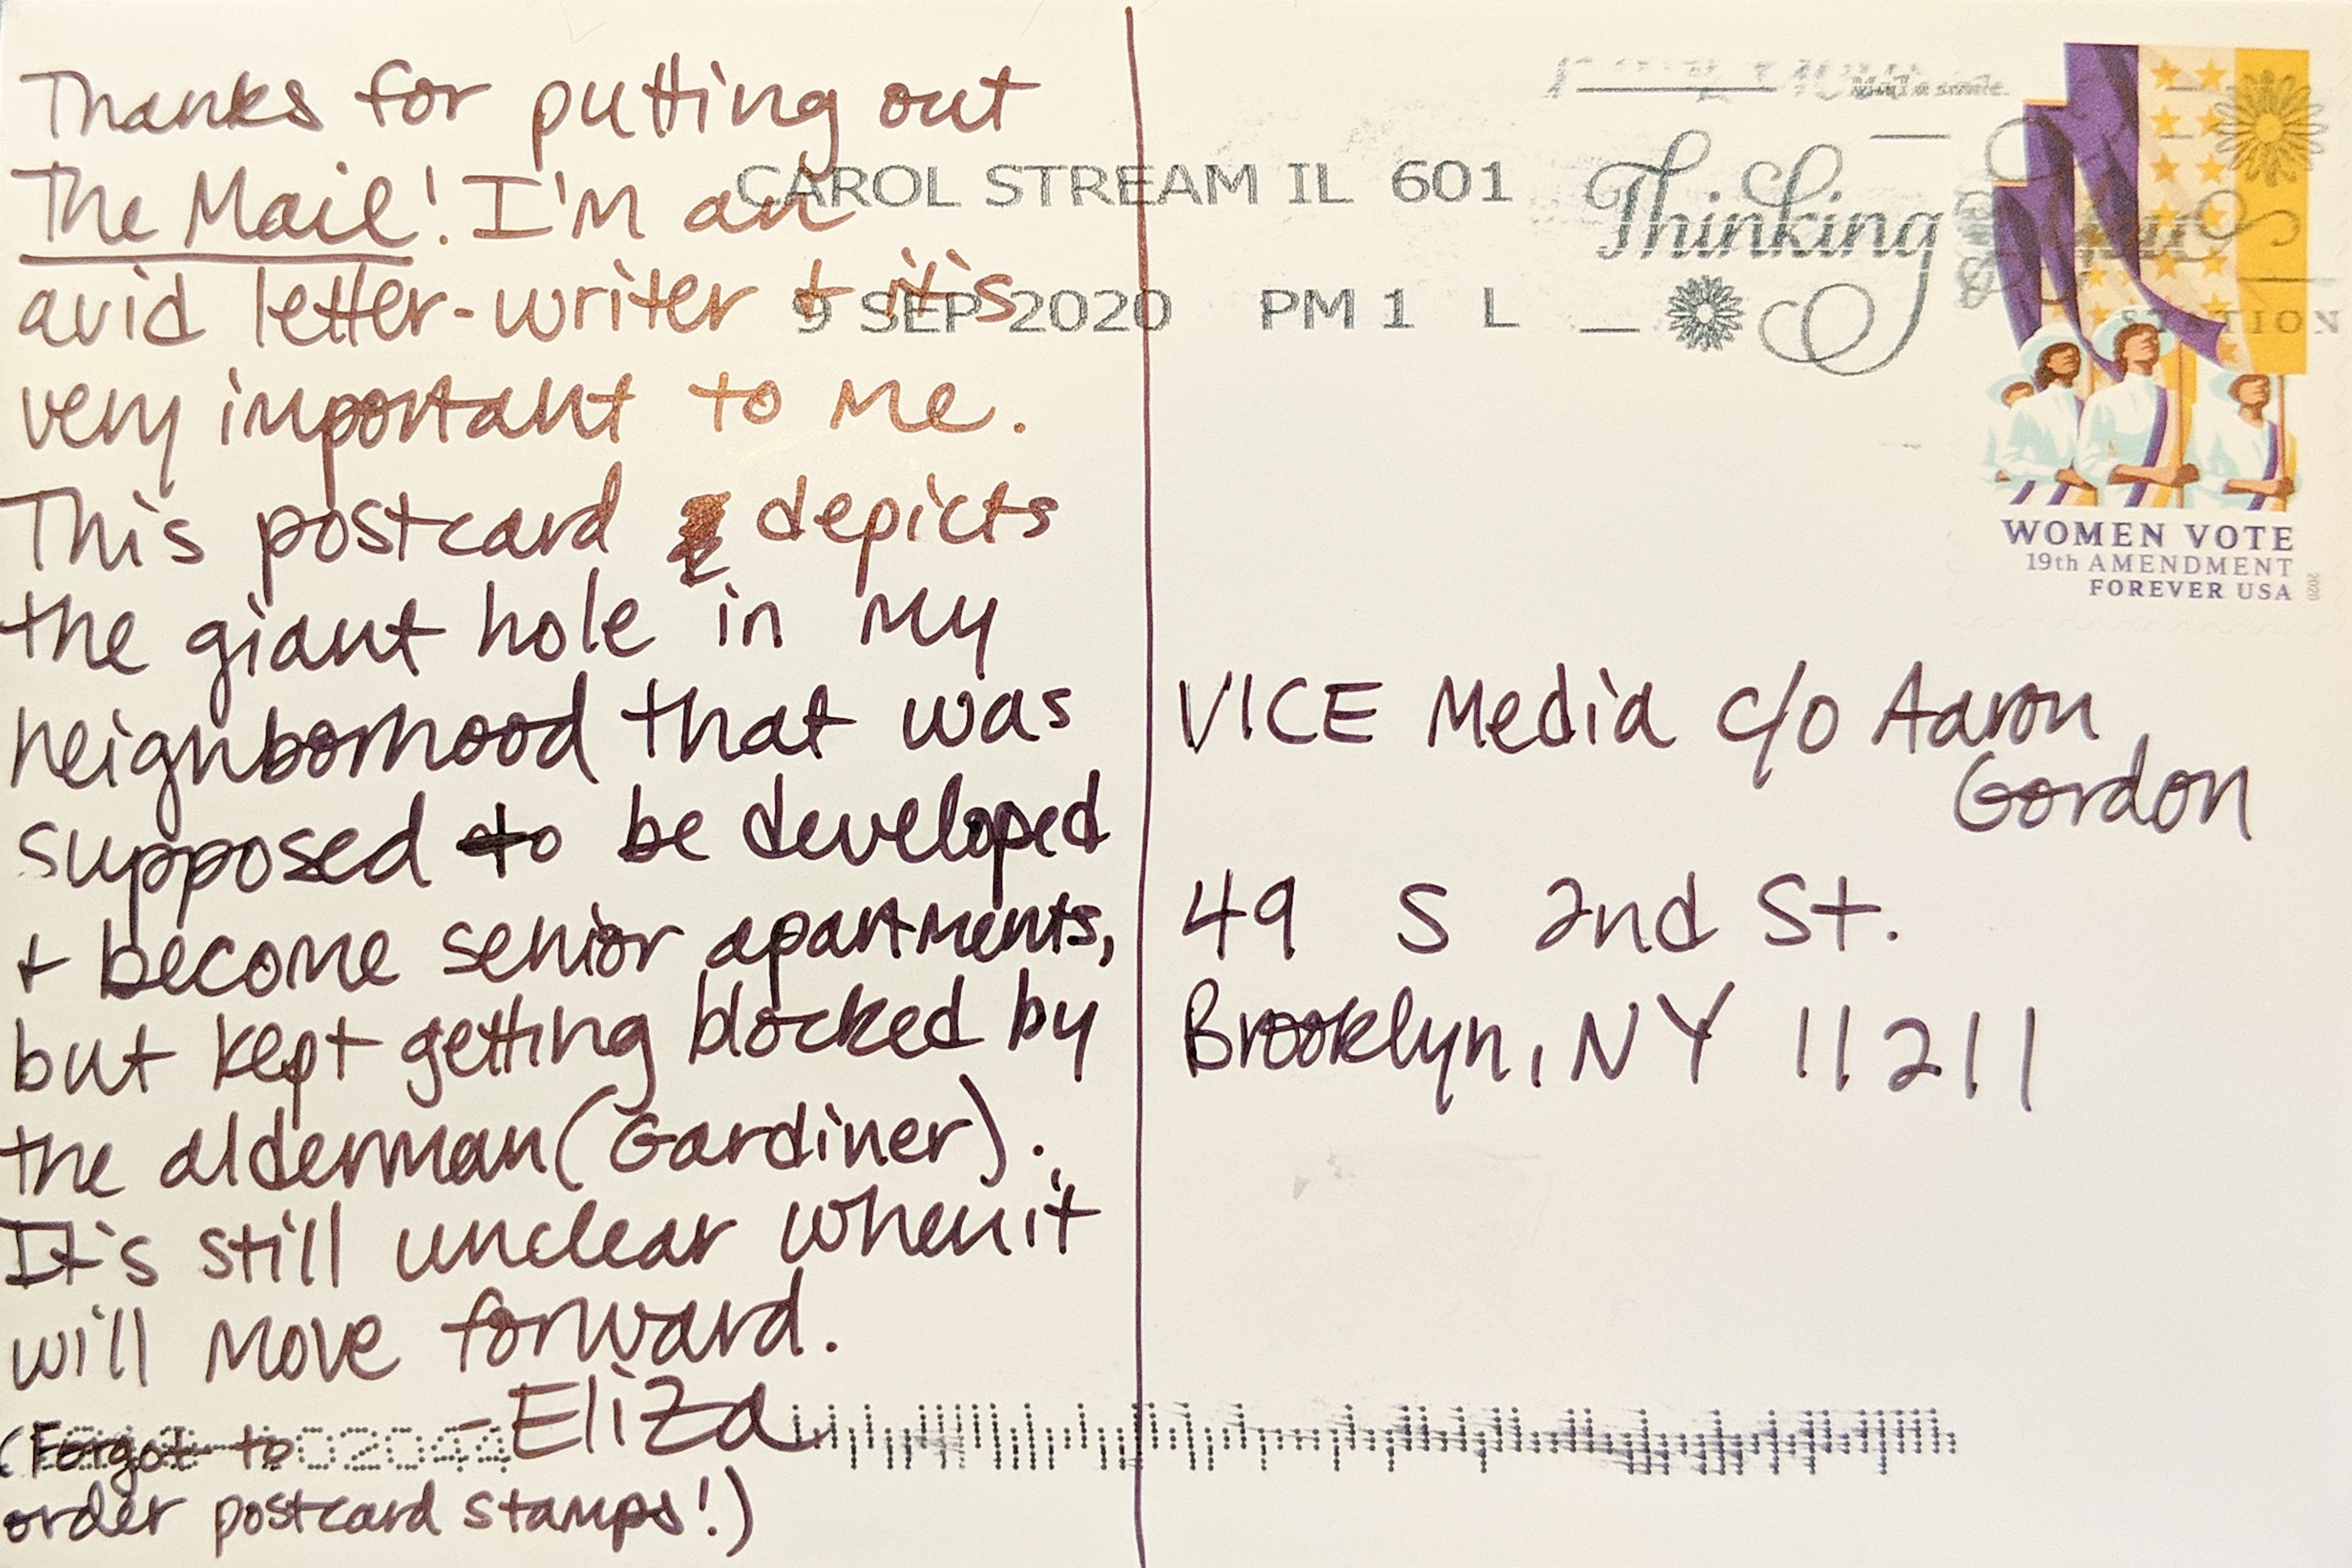 Thanks for putting out
The Mail! I'm an
avid letter-writer + it's
very important to me.
This postcard depicts
the giant hole in my
neighborhood that was
supposed to be developed
+ become senior apartments,
but kept getting blocked by
the alderman (Gardiner).
It's still unclear when it
will move forward.
-Eliza
(Forgot to
order postcard stamps!)
02044
CAROL STREAM IL 601
9 SEP 2020 PM 1 L
Thinking
STATION
WOMEN VOTE
19th AMENDMENT
FOREVER USA
2020
VICE Media c/o Aaron
Gordon
49 S 2nd St.
Brooklyn, NY 11211